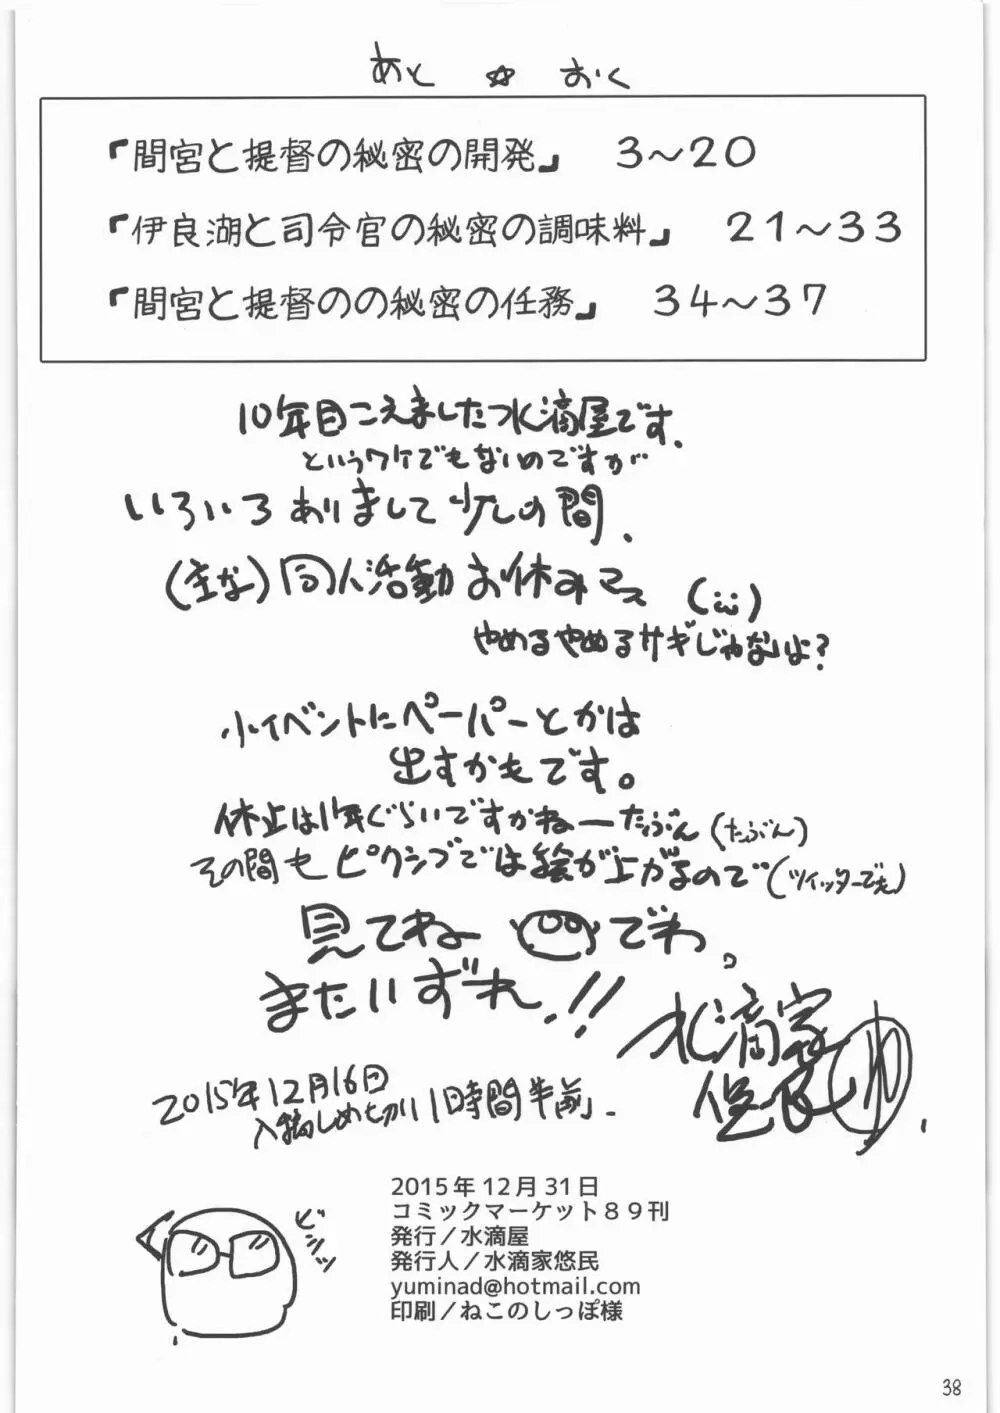 あと☆おく
「間宮と提督の秘密の開発」 3～20
「伊良湖と司令官の秘密の調味料」 21～33
「間宮と提督のの秘密の任務」 34～37
10年目こえました水滴屋です、
というワケでもないのですが
いろいろありまして少しの間、
(主な)同人活動お休みマス (；ω；)
やめるやめるサギじゃないよ?
小イベントにペーパーとかは
出すかもです。
休止は1年ぐらいですかねーたぶん(たぶん)
その間もピクシブでは絵が上がるので(ツイッターでも)
見てねー でわ。
またいずれ、!!
水滴家
悠民
2015年12月16日
入稿しめ切り1時間半前.
ビシッ
2015年12月31日
コミックマーケット89刊
発行／水滴屋
発行人／水滴家悠民
yuminad@hotmail.com
印刷／ねこのしっぽ様
38